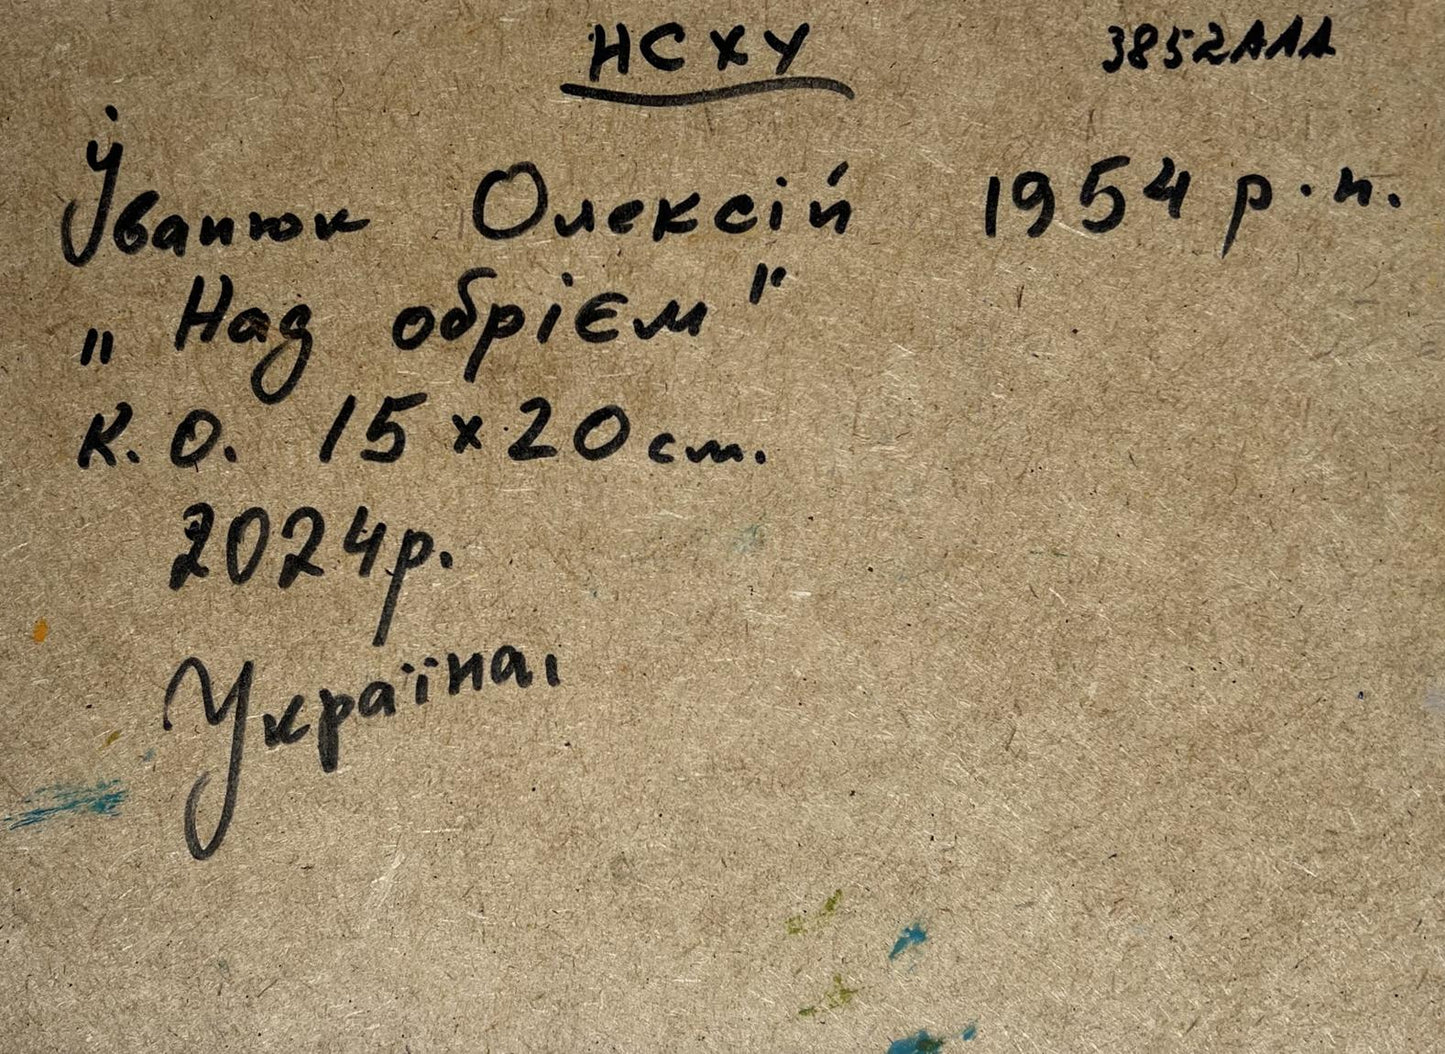 НСХУ 3852ААА
Іванюк Олексій 1954 р.н.
„Над обрієм"
К.О. 15×20 см.
2024р.
Україна,